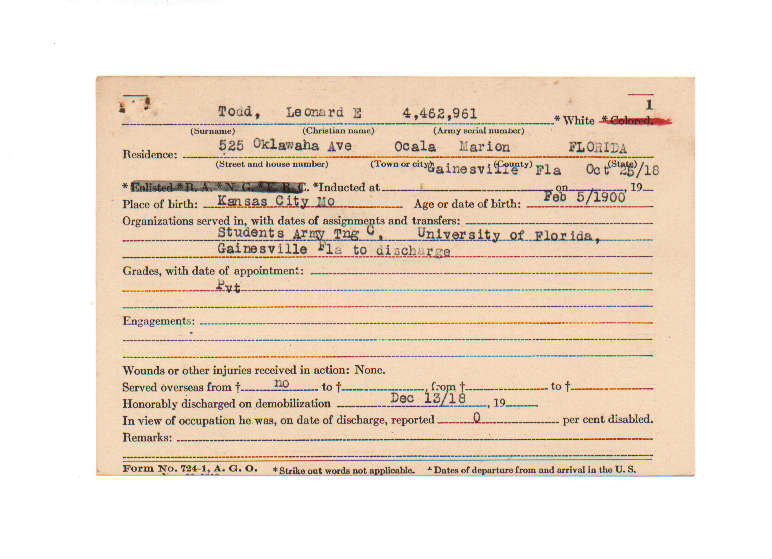 1
Todd, Leonard E 4,462,961 * White * Colored.
(Surname) (Christian name) (Army serial number)
Residence: 525 Oklawaha Ave Ocala Marion FLORIDA
(Street and house number) (Town or city) (County) (State)
* Enlisted * R. A. * N. G. * E. R. C. *Inducted at Gainesville Fla on Oct 25/18, 19
Place of birth: Kansas City Mo Age or date of birth: Feb 5/1900
Organizations served in, with dates of assignments and transfers:
Students Army Tng C, University of Florida,
Gainesville Fla to discharge
Grades, with date of appointment:
Pvt
Engagements:
Wounds or other injuries received in action: None.
Served overseas from † no to †, from † to †
Honorably discharged on demobilization Dec 13/18, 19
In view of occupation he was, on date of discharge, reported 0 per cent disabled.
Remarks:
Form No. 724-1, A. G. O. *Strike out words not applicable. † Dates of departure from and arrival in the U. S.